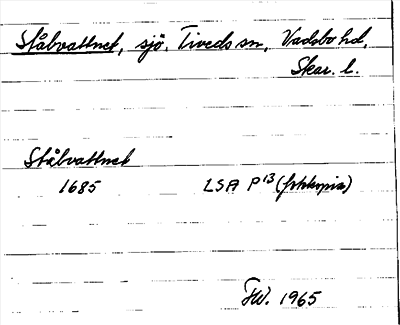 Stålvattnet, sjö. Tiveds sn, Vadsbo hd,
Skar. l.
Stålvattnet
1685 LSA P 13 (fotokopia)
FW. 1965